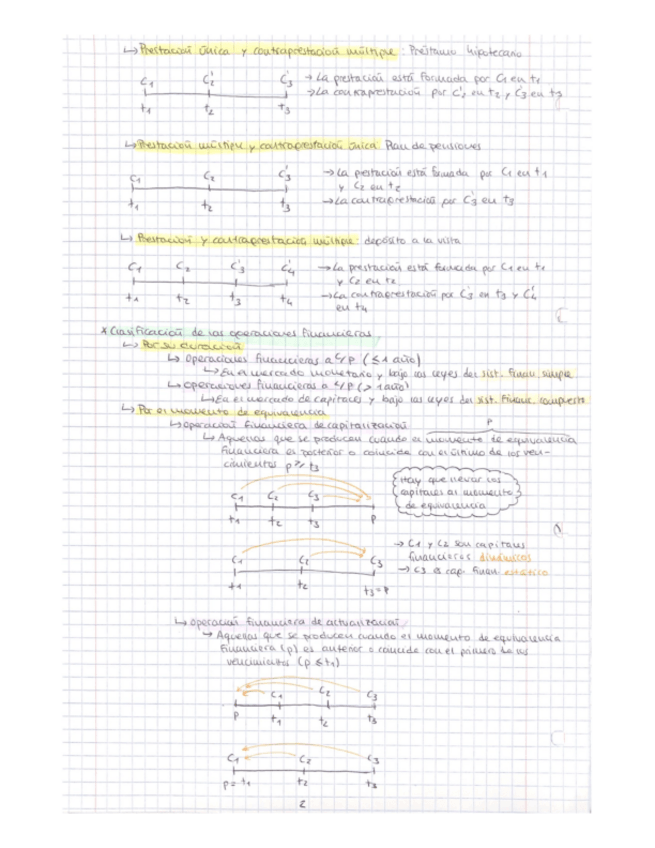 ↳ Prestación única y contraprestación múltiple: Préstamo hipotecario
C1 C'2 C'3 → La prestación está formada por C1 en t1
→ La contraprestación por C'2 en t2 y C'3 en t3
t1 t2 t3
↳ Prestación múltiple y contraprestación única: Plan de pensiones
C1 C2 C'3 → La prestación está formada por C1 en t1
y C2 en t2
t1 t2 t3 → La contraprestación por C'3 en t3
↳ Prestación y contraprestación múltiple: depósito a la vista
C1 C2 C'3 C'4 → La prestación está formada por C1 en t1
y C2 en t2
t1 t2 t3 t4 → La contraprestación por C'3 en t3 y C'4
en t4
* Clasificación de las operaciones financieras
↳ Por su duración
↳ Operaciones financieras a c/p (≤ 1 año)
↳ En el mercado monetario y bajo las leyes del sist. finan. simple
↳ Operaciones financieras a L/P (> 1 año)
↳ En el mercado de capitales y bajo las leyes del sist. financ. compuesto
↳ Por el momento de equivalencia
↳ Operación financiera de capitalización
P
↳ Aquellas que se producen cuando el momento de equivalencia
financiera es posterior o coincide con el último de los ven-
cimientos p ≥ t3
Hay que llevar los
capitales al momento
de equivalencia
C1 C2 C3
t1 t2 t3 P
C1 C2 C3
t1 t2 t3 = P
→ C1 y C2 son capitales
financieros dinámicos
→ C3 es cap. finan. estático
↳ Operación financiera de actualización
↳ Aquellas que se producen cuando el momento de equivalencia
financiera (p) es anterior o coincide con el primero de los
vencimientos (p ≤ t1)
C1 C2 C3
P t1 t2 t3
C1 C2 C3
p = t1 t2 t3
2